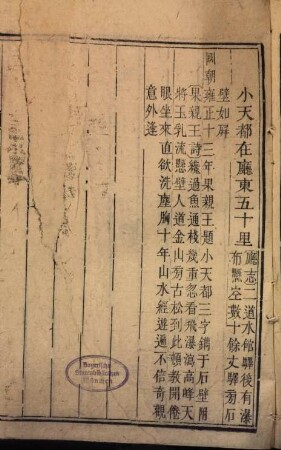 小天都在廳東五十里廳志二道水舘驛後有瀑
布懸空數十餘丈驛旁石
壁如屏
國朝雍正十三年果親王題小天都三字鐫于石壁
果親王詩纔過魚通棧幾重忽看飛瀑瀉高峰天
將玉乳流懸壁人道金山旁古松到此頓教開倦
眼坐來直欲洗塵胸十年山水經遊遍不信奇觀
意外逢
Bayerische
Staatsbibliothek
München